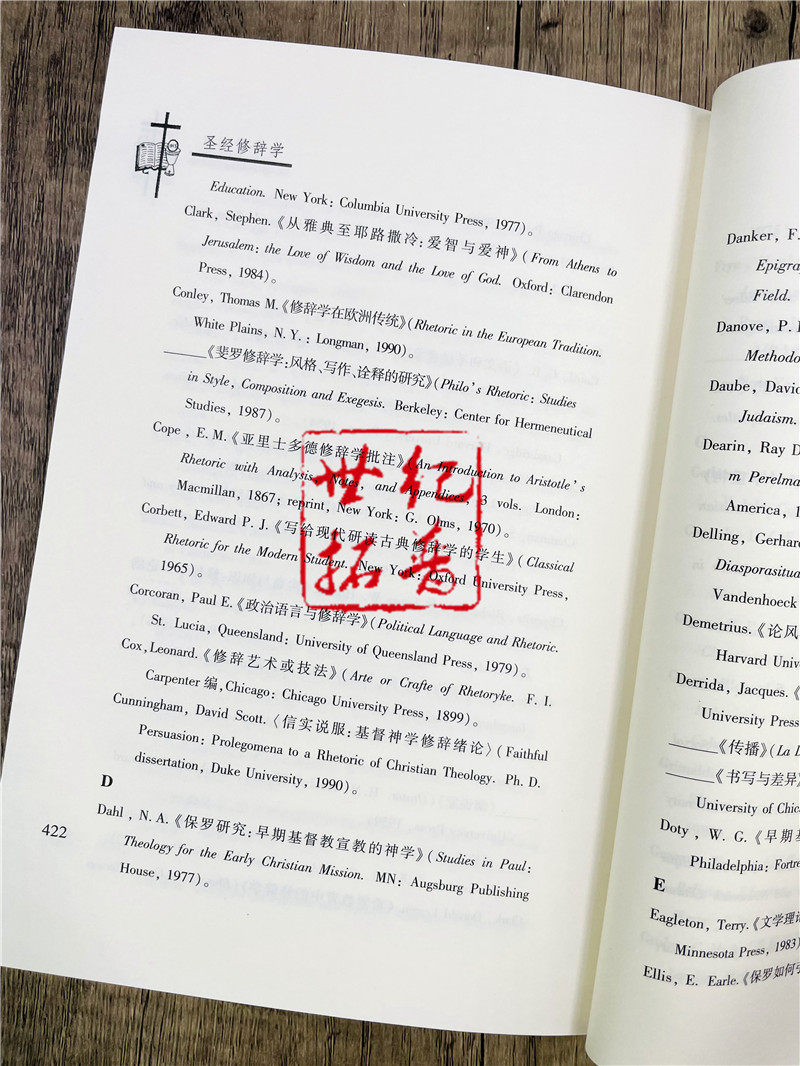 圣经修辞学
Education. New York: Columbia University Press, 1977)。
Clark, Stephen.《从雅典至耶路撒冷:爱智与爱神》(From Athens to
Jerusalem: the Love of Wisdom and the Love of God. Oxford: Clarendon
Press, 1984)。
Conley, Thomas M.《修辞学在欧洲传统》(Rhetoric in the European Tradition.
White Plains, N. Y. : Longman, 1990)。
______《斐罗修辞学:风格、写作、诠释的研究》(Philo's Rhetoric: Studies
in Style, Composition and Exegesis. Berkeley: Center for Hermeneutical
Studies, 1987)。
Cope, E. M.《亚里士多德修辞学批注》(An Introduction to Aristotle's
Rhetoric with Analysis, Notes, and Appendices, 3 vols. London:
Macmillan, 1867; reprint, New York: G. Olms, 1970)。
Corbett, Edward P. J.《写给现代研读古典修辞学的学生》(Classical
Rhetoric for the Modern Student. New York: Oxford University Press,
1965)。
Corcoran, Paul E.《政治语言与修辞学》(Political Language and Rhetoric.
St. Lucia, Queensland: University of Queensland Press, 1979)。
Cox, Leonard.《修辞艺术或技法》(Arte or Crafte of Rhetoryke. F. I.
Carpenter 编, Chicago: Chicago University Press, 1899)。
Cunningham, David Scott.〈信实说服:基督神学修辞绪论〉(Faithful
Persuasion: Prolegomena to a Rhetoric of Christian Theology. Ph. D.
dissertation, Duke University, 1990)。
D
Dahl, N. A.《保罗研究:早期基督教宣教的神学》(Studies in Paul:
Theology for the Early Christian Mission. MN: Augsburg Publishing
House, 1977)。
422
世纪
拓普
Danker, F.
Epigra
Field.
Danove, P.
Methodo
Daube, David
Judaism.
Dearin, Ray D
m Perelma
America, 1
Delling, Gerhar
Diasporasitua
Vandenhoeck
Demetrius.《论风
Harvard Univ
Derrida, Jacques.《
University Press,
______《传播》(La D
______《书写与差异》
University of Chica
Doty, W. G.《早期基
Philadelphia: Fortre
E
Eagleton, Terry.《文学理论
Minnesota Press, 1983)
Ellis, E. Earle.《保罗如何引